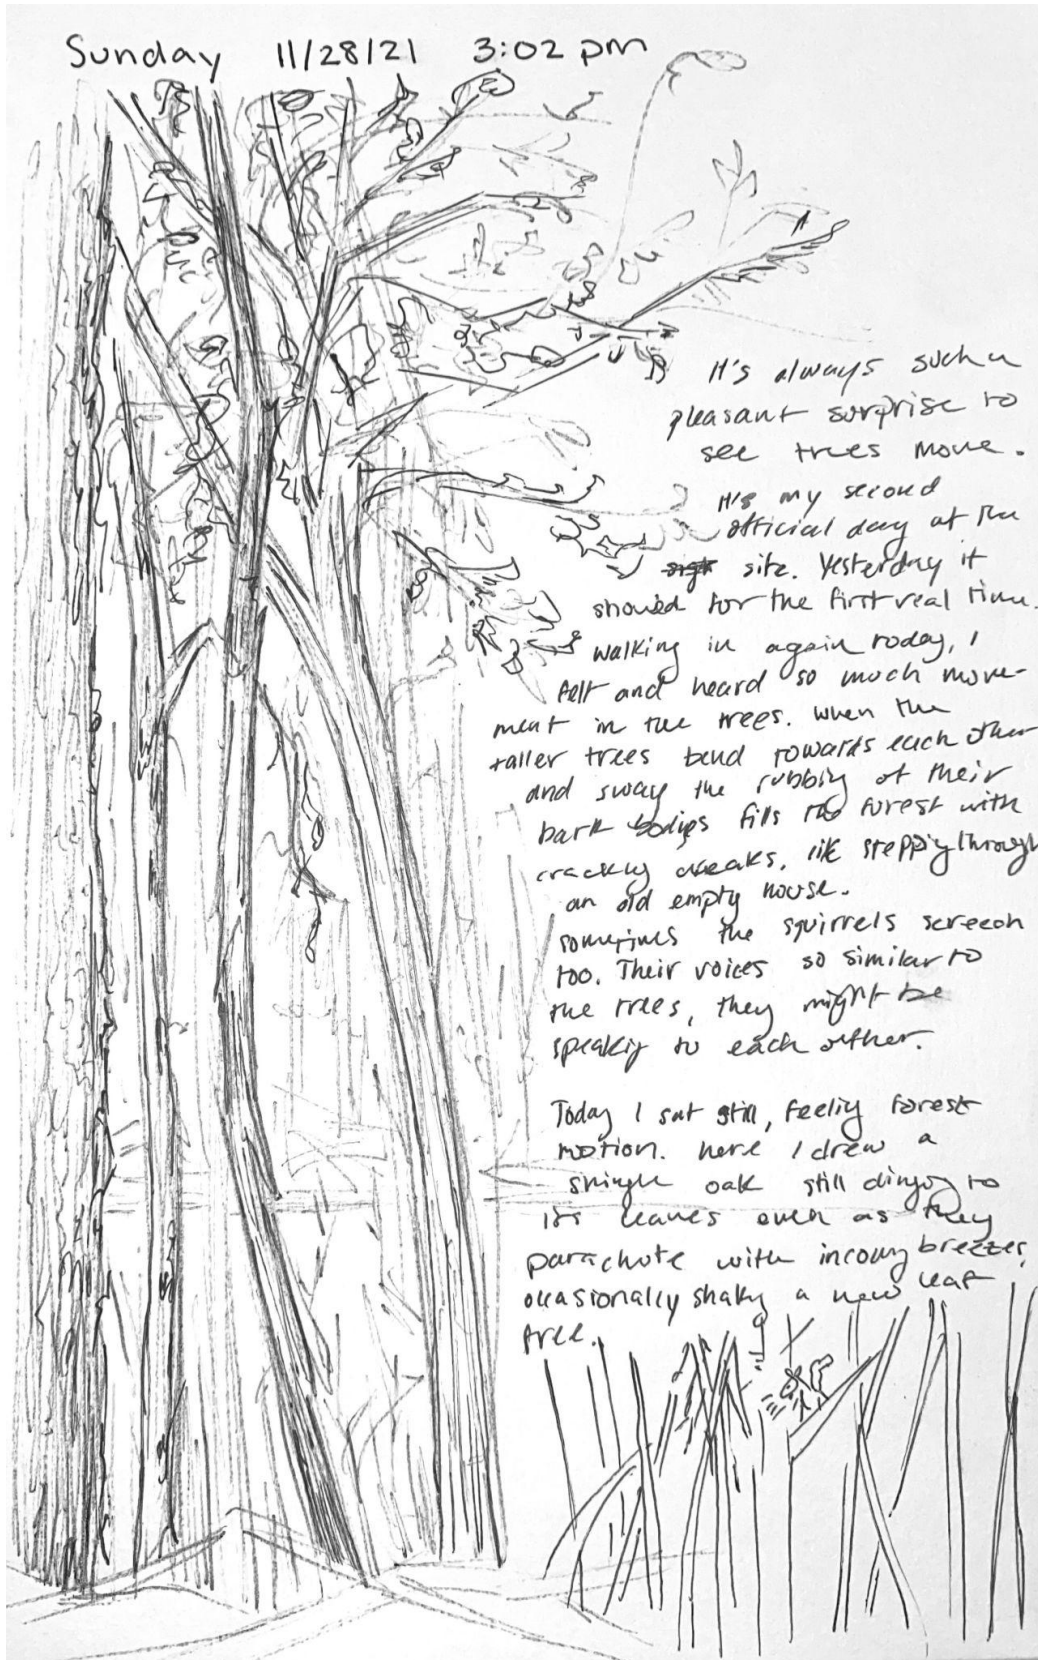 Sunday 11/28/21 3:02 pm
It's always such a
pleasant surprise to
see trees move.
It's my second
official day at the
site. Yesterday it
snowed for the first real time.
walking in again today, I
felt and heard so much move-
ment in the trees. When the
taller trees bend towards each other
and sway the rubbing of their
bark bodies fills the forest with
crackly creaks, like stepping through
an old empty house.
sometimes the squirrels screech
too. Their voices so similar to
the trees, they might be
speaking to each other.
Today I sat still, feeling forest
motion. here I drew a
single oak still clinging to
its leaves even as they
parachute with incoming breezes,
occasionally shaking a new leaf
free.